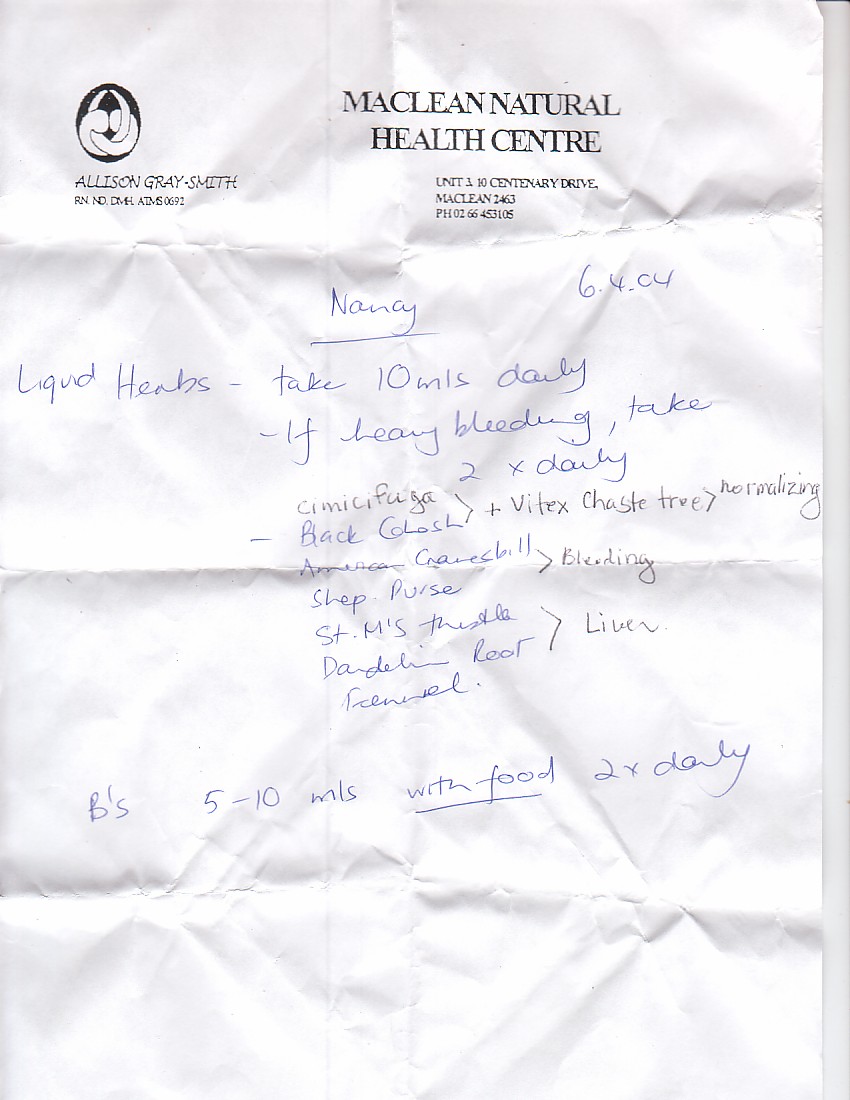 MACLEAN NATURAL
HEALTH CENTRE
ALLISON GRAY-SMITH
RN. ND. DMH. ATMS 0692
UNIT 3, 10 CENTENARY DRIVE,
MACLEAN 2463
PH 02 66 453105
6.4.04
Nancy
Liquid Herbs - take 10 mls daily
- If heavy bleeding, take
2 x daily
cimicifuga > + Vitex Chaste tree > normalizing
- Black Cohosh
American Cranesbill > Bleeding
Shep. Purse
St. M's thistle > Liver.
Dandelin Root
Fennel.
B's 5-10 mls with food 2x daily